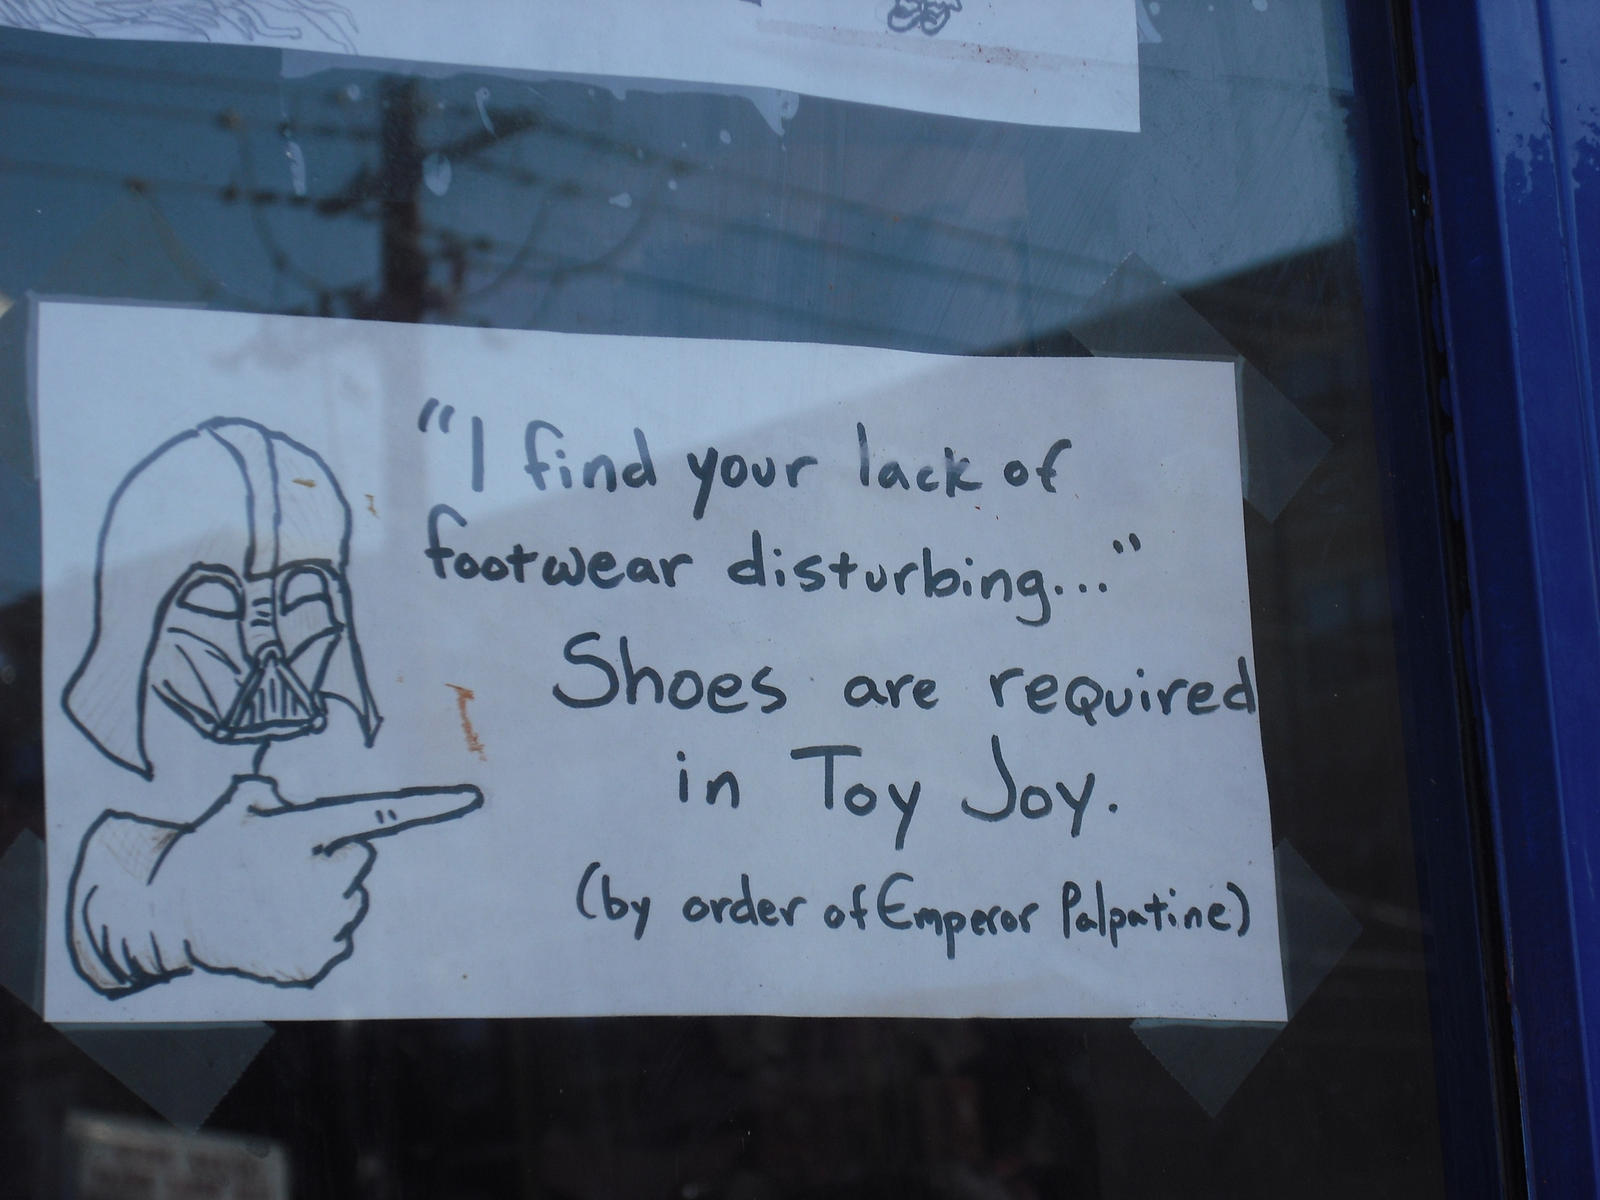 "I find your lack of
footwear disturbing..."
Shoes are required
in Toy Joy.
(by order of Emperor Palpatine)